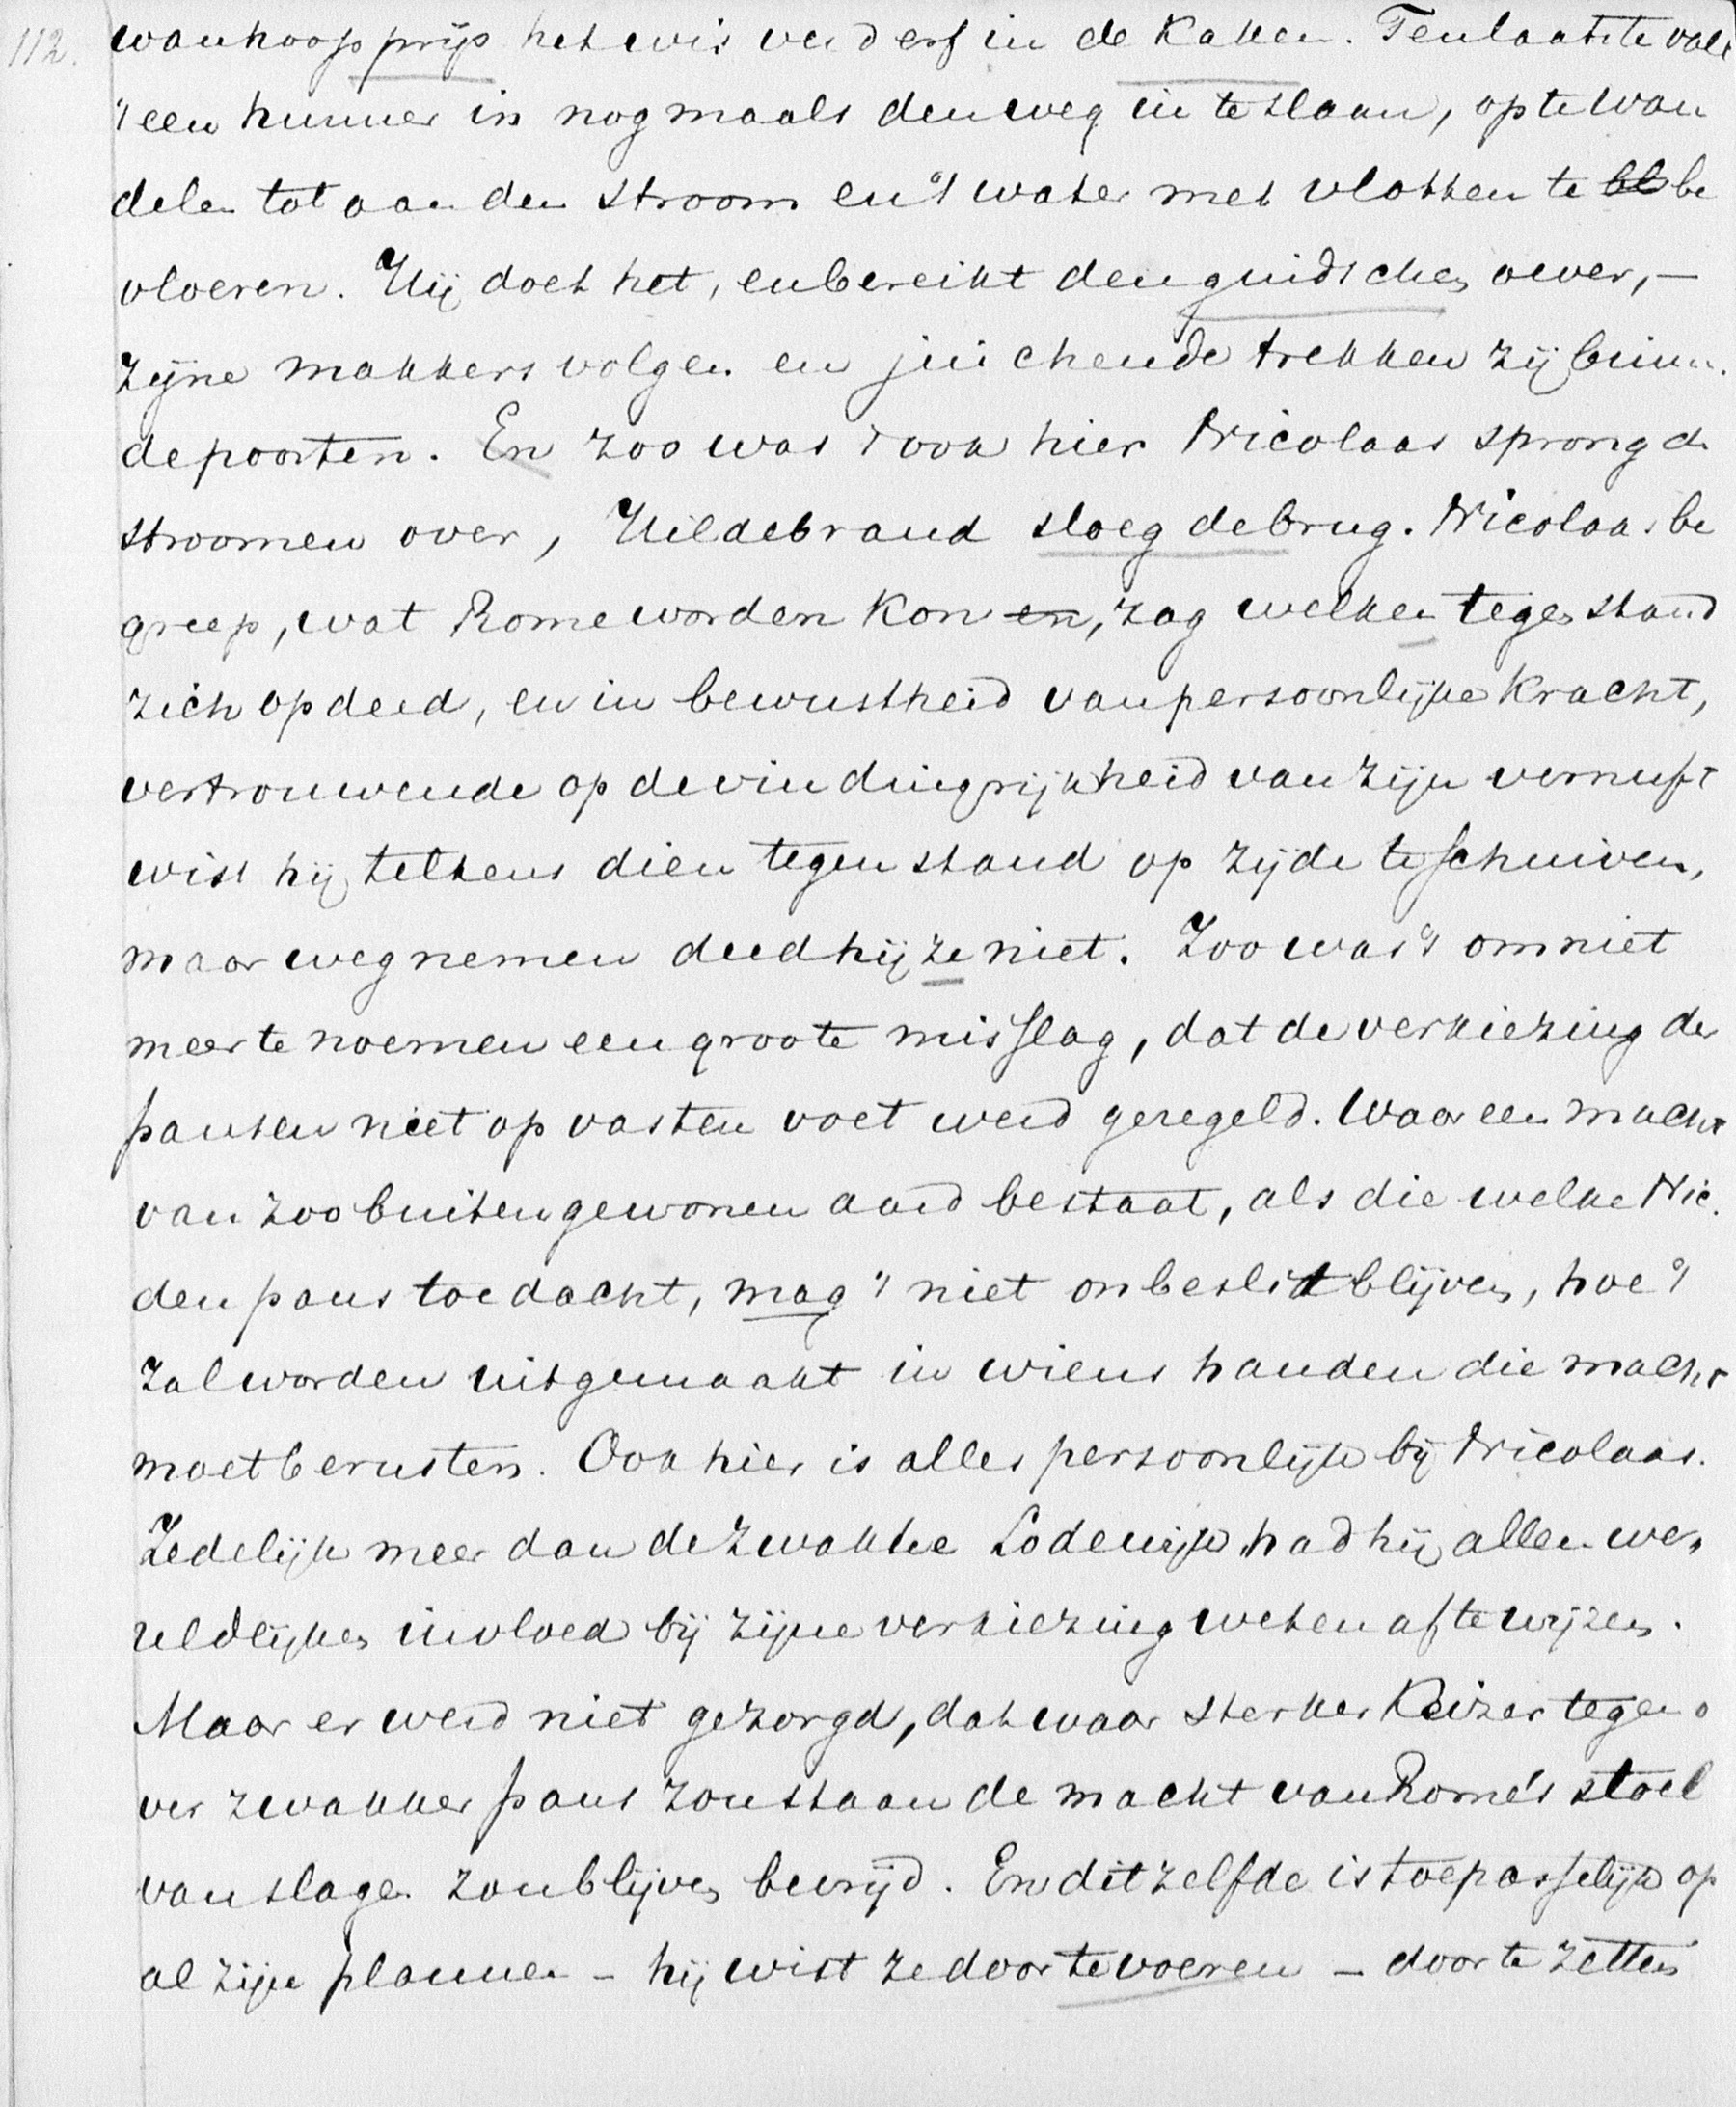 112. wanhoop prijs het wis verderf in de kaken. Tenlaatste valt
't een hunner in nogmaals den weg in te slaan, op te wan
delen tot aan den stroom en 't water met vlotten te bl be
vloeren. Hij doet het, en bereikt den zuidschen oever, —
zijne makkers volgen en juichende trekken zij binn.
de poorten. En zoo was 't ook hier Nicolaas sprong de
stroomen over, Hildebrand sloeg de brug. Nicolaas be
greep, wat Rome worden kon en, zag welken tegenstand
zich opdeed, en in bewustheid van persoonlijke kracht,
vertrouwende op de vindingrijkheid van zijn vernuft
wist hij telkens dien tegenstand op zijde te schuiven,
maar wegnemen deed hij ze niet. Zoo was 't om niet
meer te noemen een groote misslag, dat de verkiezing der
pausen niet op vasten voet werd geregeld. Waar een macht
van zoo buitengewonen aard bestaat, als die welke Nic.
den paus toedacht, mag 't niet onbeslist blijven, hoe 't
zal worden uitgemaakt in wiens handen die macht
moet berusten. Ook hier is alles persoonlijk bij Nicolaas.
Zedelijk meer dan de zwakke Lodewijk had hij allen we,
reldlijken invloed bij zijne verkiezing weten af te wijzen.
Maar er werd niet gezorgd, dat waar sterker Keizer tegeno
ver zwakker paus zou staan de macht van Rome's stoel
van slagen zou blijven bevrijd. En ditzelfde is toepasselijk op
al zijn plannen - hij wist ze door te voeren - door te zetten